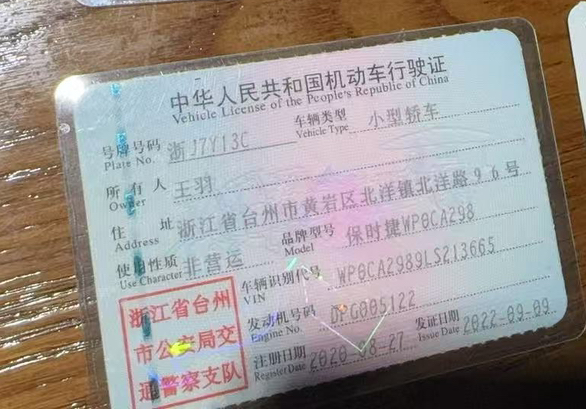 中华人民共和国机动车行驶证
Vehicle License of the People's Republic of China
号牌号码 Plate No. 浙J7Y13C 车辆类型 Vehicle Type 小型轿车
所有人 Owner 王羽
住址 Address 浙江省台州市黄岩区北洋镇北洋路96号
使用性质 Use Character 非营运 品牌型号 Model 保时捷WP0CA298
车辆识别代号 VIN WP0CA2989LS213665
发动机号码 Engine No. DPG005122
注册日期 Register Date 2020-08-27 发证日期 Issue Date 2022-09-09
浙江省台州
市公安局交
通警察支队